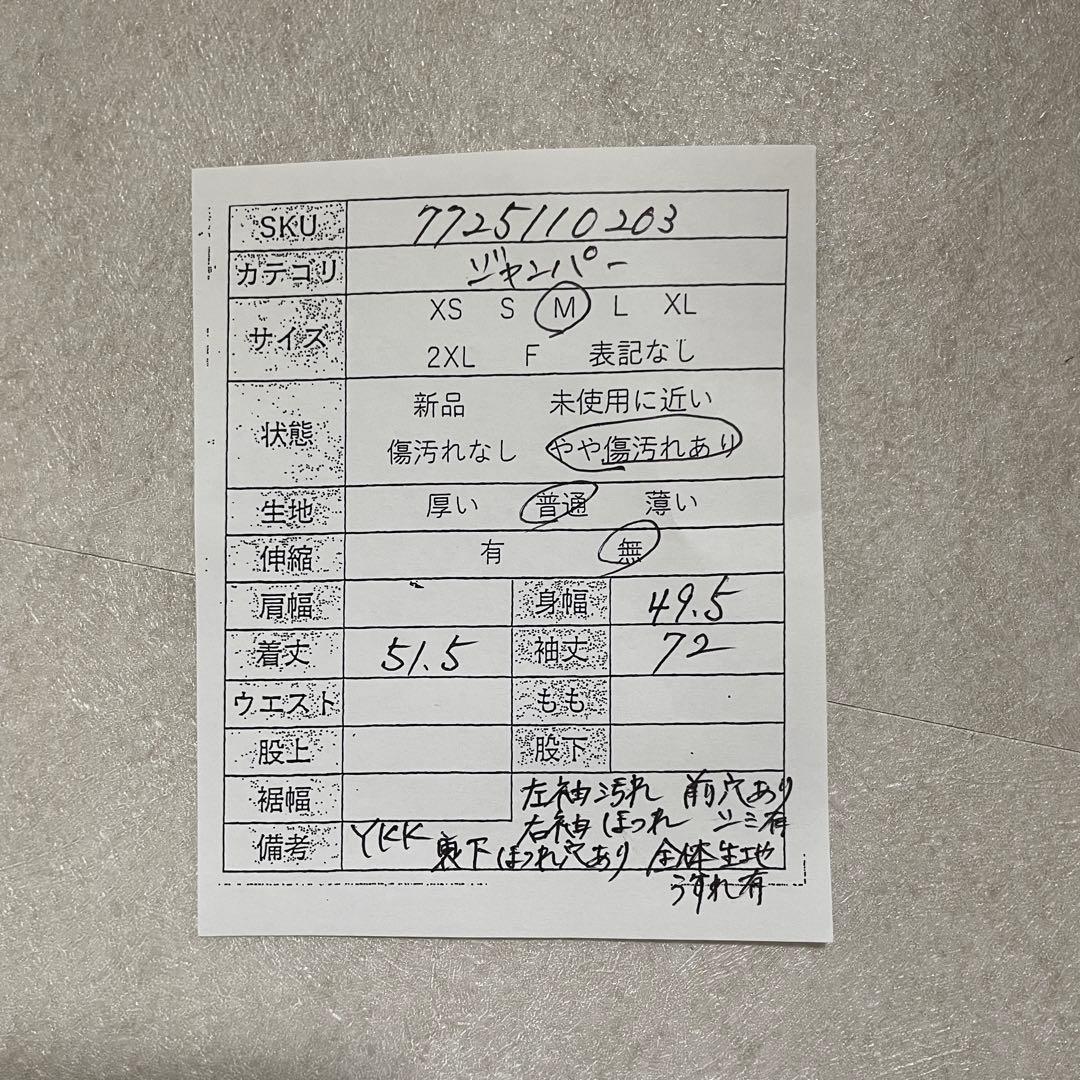 SKU 7725110203
カテゴリ ジャンパー
サイズ XS S M L XL
2XL F 表記なし
状態 新品 未使用に近い
傷汚れなし やや傷汚れあり
生地 厚い 普通 薄い
伸縮 有 無
肩幅 身幅 49.5
着丈 51.5 袖丈 72
ウエスト もも
股上 股下
裾幅
左袖汚れ 前穴あり
右袖ほつれ シミ有
備考 YKK 裏下ほつれ穴あり 全体生地
うすれ有